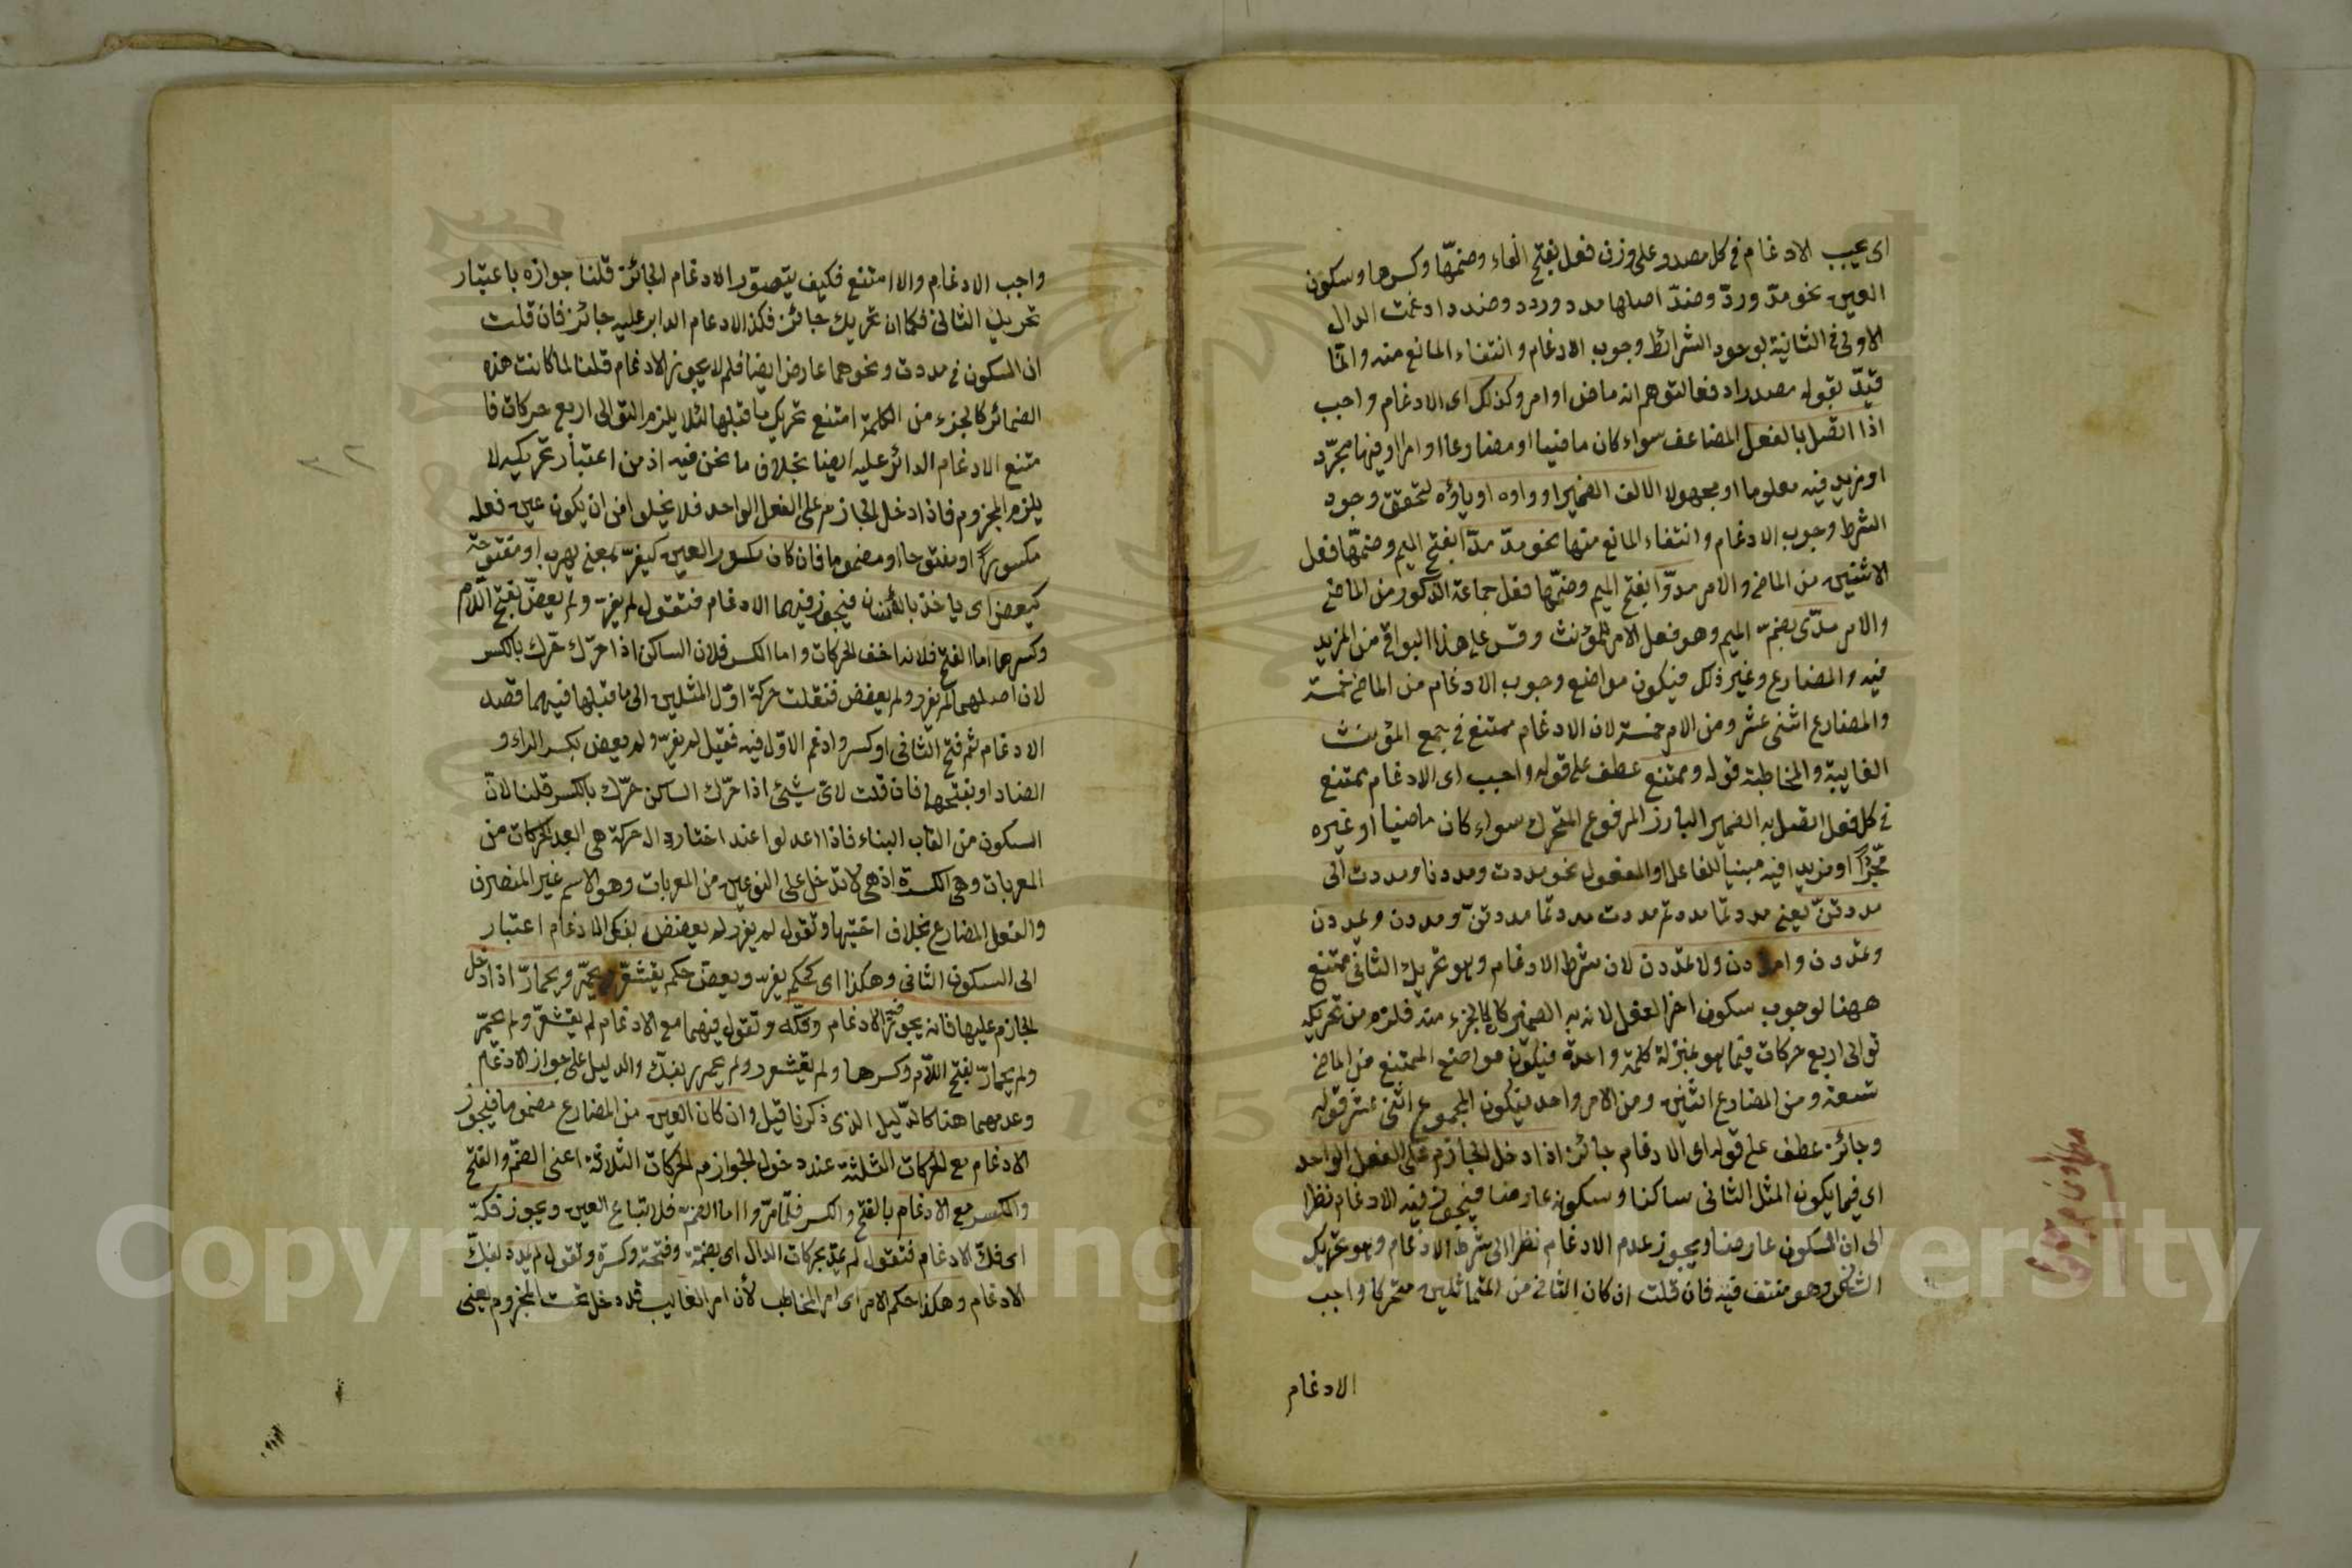 اى يجب الادغام فى كل مصدر على وزن فعل بفتح الفاء وضمها وكسرها وسكون
العين نحو مدّ وردّ وضدّ اصلها مدد وردد وضدد ادغمت الدال
الاولى فى الثانية لوجود الشرائط وجوب الادغام وانتفاء المانع منه وانّما
قيّد بقوله مصدرا دفعا لتوهم انه ماض او امر وكذلك اى الادغام واجب
اذا اتصل بالفعل المضاعف سواء كان ماضيا او مضارعا او امرا وفيها مجرّد
او مزيد فيه معلوما او مجهولا الالف الضمير او واوه او ياؤه لتحقق وجود
الشرط وجوب الادغام وانتفاء المانع منها نحو مدّ مدّا بفتح الميم وضمّها فعل
الاثنين من الماضى والامر مدّوا بفتح الميم وضمّها فعل جماعة الذكور من الماضى
والامر مدّى بضمّ الميم وهو فعل الامر للمؤنث وقس على هذا البواقى من المزيد
فيه والمضارع وغير ذلك فيكون مواضع وجوب الادغام من الماضى خمسة
والمضارع اثنى عشر ومن الامر خمسة لان الادغام ممتنع فى جمع المؤنث
الغايبة والمخاطبة قوله وممتنع عطف على قوله واجب اى الادغام ممتنع
فى كل فعل اتصل به الضمير البارز المرفوع المتحرك سواء كان ماضيا او غيره
مجرّدا او مزيدا فيه مبنيا للفاعل او المفعول نحو مددت ومددنا ومددت الى
مددتنّ يعنى مددتما مددتم مددت مددتما مددتنّ ومددن ويمددن
وتمددن وامددن ولا تمددن لان شرط الادغام وهو تحريك الثانى ممتنع
ههنا لوجوب سكون اخر الفعل لانه به الضمير كالجزء منه فلزم من تحريكه
توالى اربع حركات فيما هو بمنزلة كلمة واحدة فيكون مواضع الممتنع من الماضى
تسعة ومن المضارع اثنين ومن الامر واحد فيكون المجموع اثنى عشر قوله
وجائز عطف على قوله اى الادغام جائز اذا دخل الجازم على الفعل الواحد
اى فيما يكون المثل الثانى ساكنا وسكونه عارضا فيجوز فيه الادغام نظرا
الى ان السكون عارضا ويجوز عدم الادغام نظرا الى شرط الادغام وهو تحريك
الثانى وهو منتف فيه فان قلت ان كان الثانى من المتماثلين متحركا واجب
الادغام
واجب الادغام والا امتنع فكيف يتصوّر الادغام الجائز قلنا جوازه باعتبار
تحريك الثانى فكما ان تحريك جائز فكذا الادغام الداير عليه جائز فان قلت
ان السكون فى مددت ونحوهما عارض ايضا فلم لا يجوز الادغام قلنا لما كانت هذه
الضمائر كالجزء من الكلمة امتنع تحريك ما قبلها لئلا يلزم التوالى اربع حركات فا
متنع الادغام الدائر عليه ايضا بخلاف ما نحن فيه اذ من اعتبار تحريكه لا
يلزم المجزوم فاذا دخل الجازم على الفعل الواحد فلا يخلوا من ان يكون عين فعله
مكسورا او مفتوحا او مضموما فان كان مكسور العين كيفرّ بمعنى يهرب او مفتوحة
كيعض اى ياخذ بالاسنان فيجوز فيهما الادغام فتقول لم يفرّ ولم يعضّ بفتح اللام
وكسرهما اما الفتح فلانه اخف الحركات واما الكسر فلان الساكن اذا حرّك حرّك بالكسر
لان اصلهما لم يفرر ولم يعضض فنقلت حركة اوّل المثلين الى ما قبلها فيهما قصد
الادغام ثم فتح الثانى او كسر وادغم الاوّل فيه فقيل لم يفرّ ولم يعض بكسر الراء و
الضاد او بفتحها فان قلت لاىّ شيئ اذا حرّك الساكن حرّك بالكسر قلنا لانّ
السكون من القاب البناء فاذا عدلوا عند اختاروا حركة هى ابعد الحركات من
المعربات وهى الكسرة اذ هى لا تدخل على النوعين من المعربات وهو الاسم غير المنصرف
والفعل المضارع بخلاف اختيها وتقول لم يفرر لم يعضض بفك الادغام اعتبار
الى السكون الثانى وهكذا اى كحكم يفرّ ويعضّ حكم يقشعرّ ويحمرّ ويحمارّ اذا دخل
الجازم عليها فانه يجوز فيها الادغام وفكّه وتقول فيهما مع الادغام لم يقشعرّ ولم يحمرّ
ولم يحمارّ بفتح اللام وكسرها ولم يقشعرر ولم يحمرر بفك والدليل على جواز الادغام
وعدمهما هنا كالدّليل الذى ذكرنا قبل وان كان العين من المضارع مضموما فيجوز
الادغام مع الحركات الثلثة عند دخول الجوازم الحركات الثلاثة اعنى الضمّ والفتح
والكسر مع الادغام بالفتح والكسر فلما مرّ واما الضمّ فلاتباع العين ويجوز فكّه
اى فكّ الادغام فتقول لم يمدّ بحركات الدال اى بضمّة وفتحة وكسرة وتقول لم يمدد بفكّ
الادغام وهكذا حكم الامر اى امر المخاطب لأن امر الغايب قد دخل تحت المجزوم يعنى
Copyright © King Saud University
1957